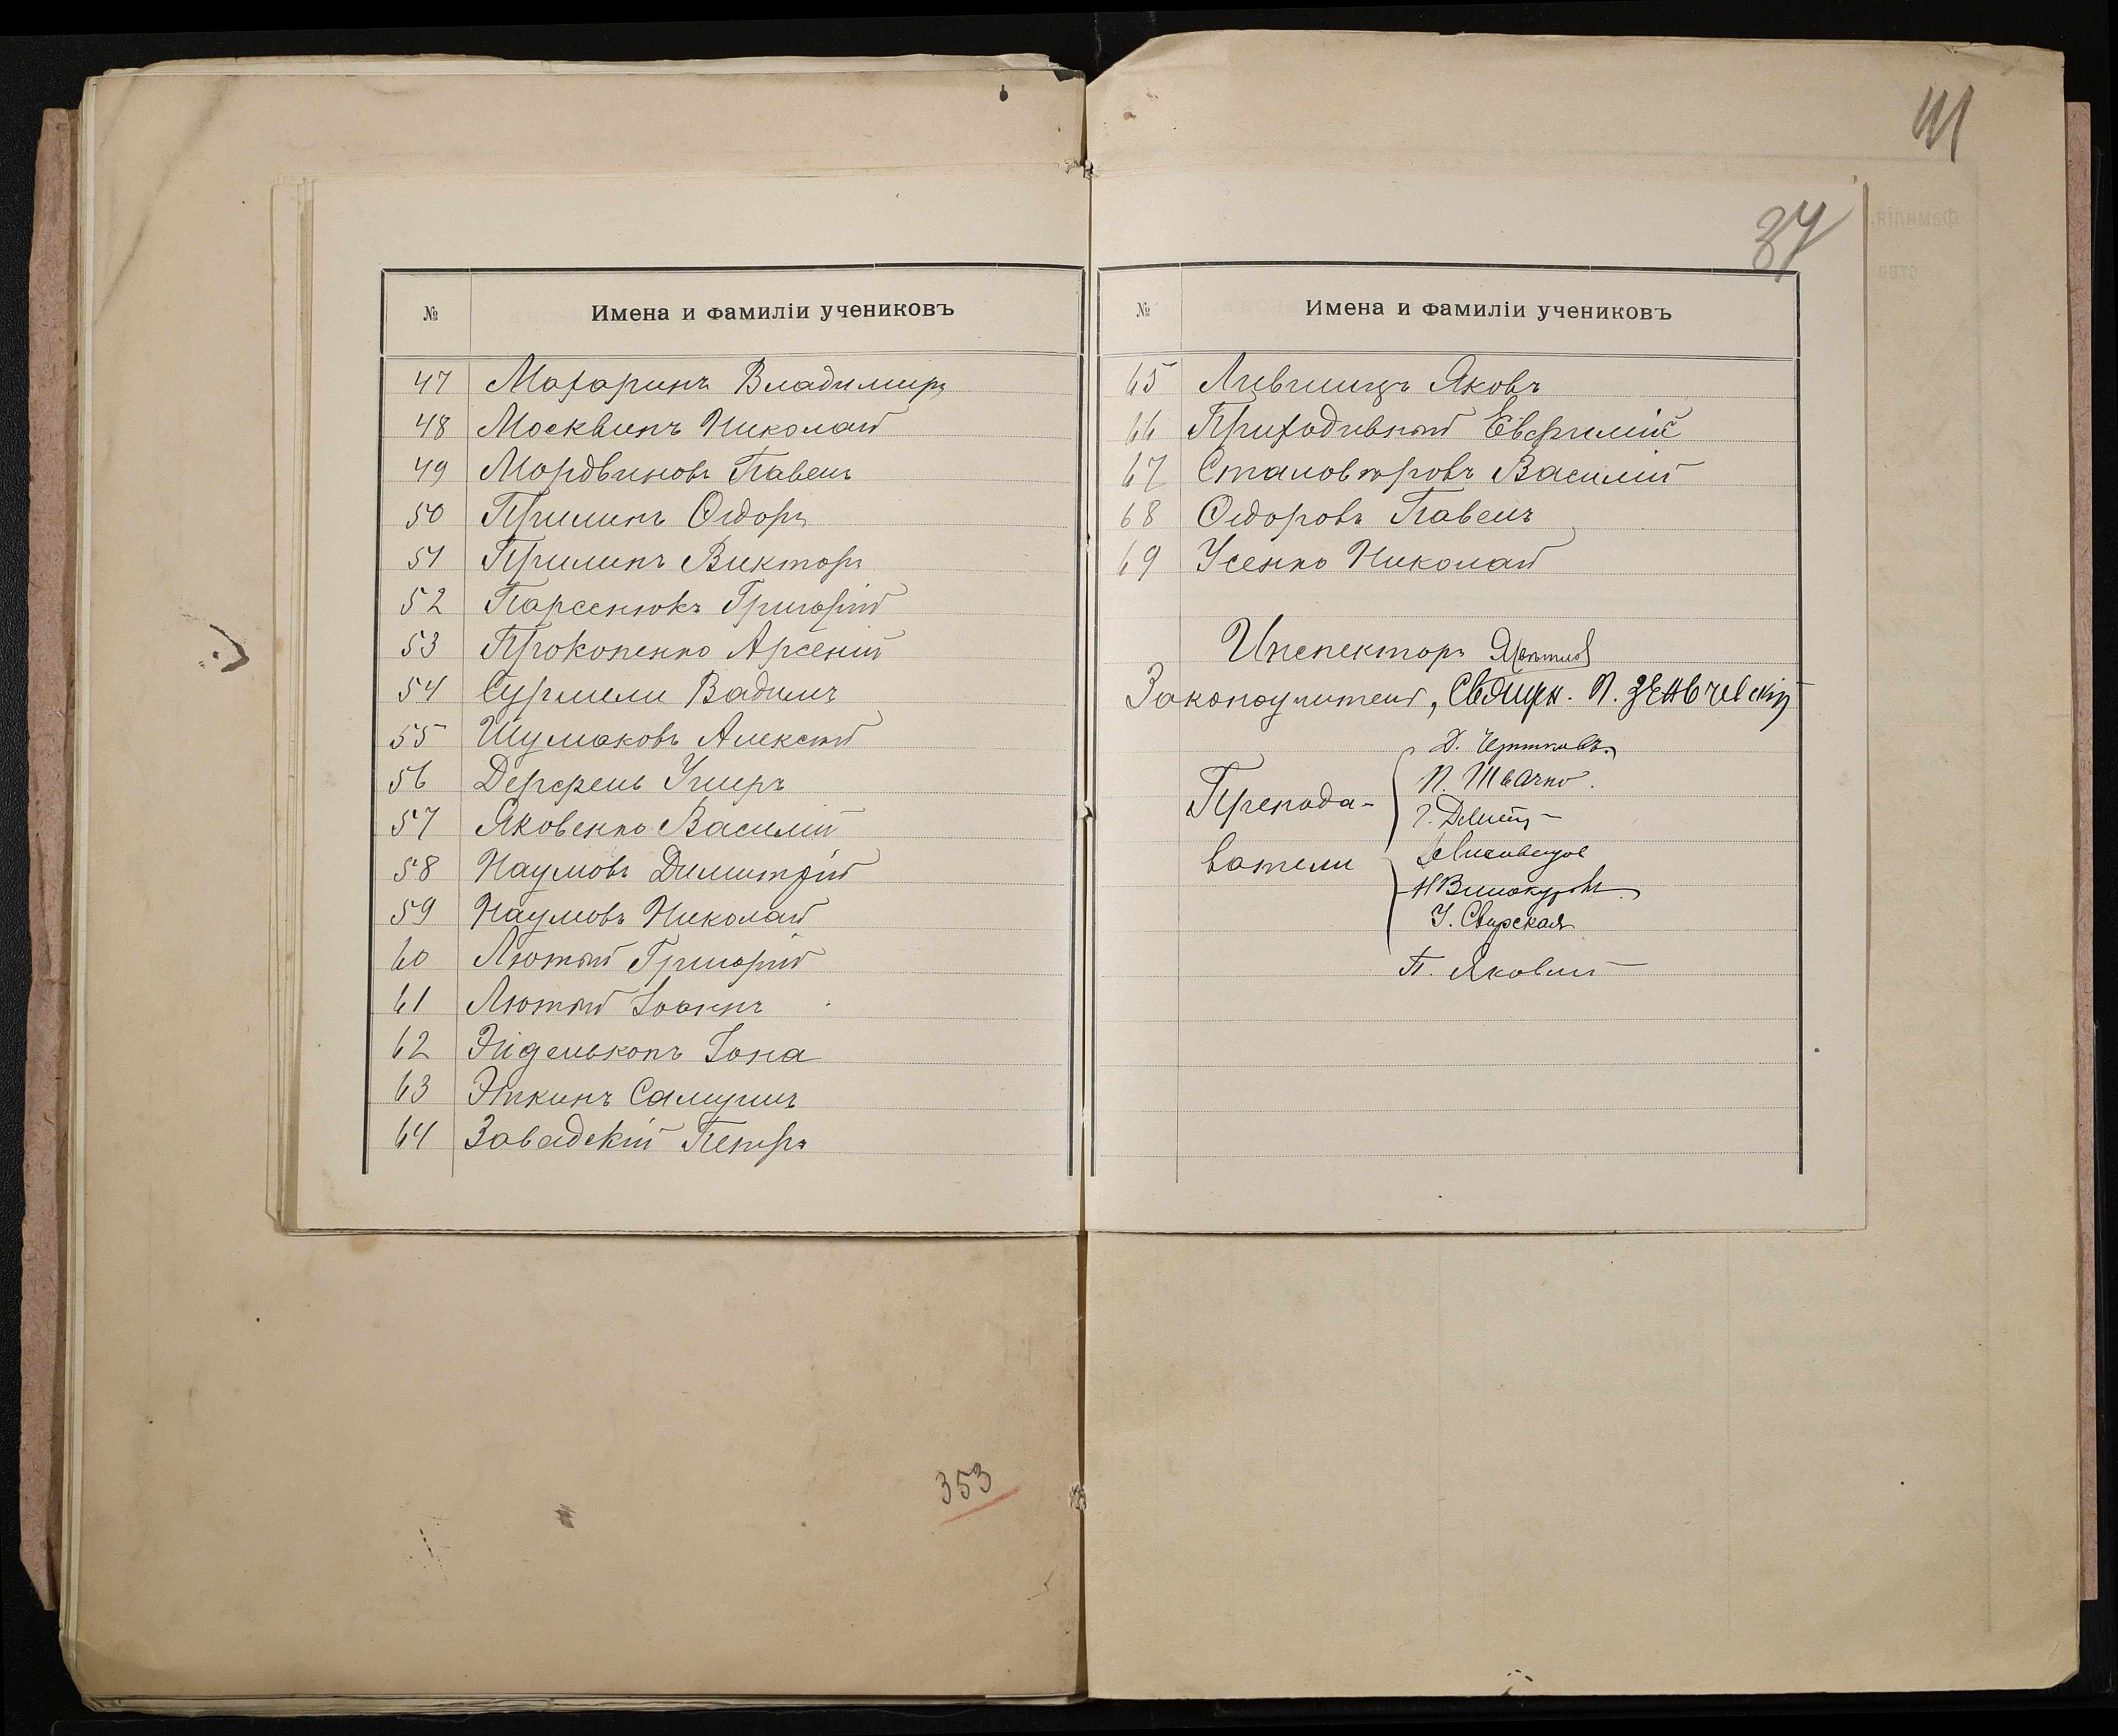 41
37
№ Имена и фамиліи учениковъ
47 Махаринъ Владимиръ
48 Москвинъ Николай
49 Мордвиновъ Павелъ
50 Прилипъ Ѳедоръ
51 Прилипъ Викторъ
52 Парсенюкъ Григорій
53 Прокопенко Арсеній
54 Сурмели Вадимъ
55 Шумаковъ Алексѣй
56 Дерфель Ушеръ
57 Яковенко Василій
58 Наумовъ Димитрій
59 Наумовъ Николай
60 Лютый Григорій
61 Лютый Іоаннъ
62 Эйдельконъ Іона
63 Эткинъ Самуилъ
64 Завадскій Петръ
353
№ Имена и фамиліи учениковъ
65 Лившицъ Яковъ
66 Приходивный Евфимій
67 Становѣровъ Василій
68 Ѳедоровъ Павелъ
69 Усенко Николай
Инспекторъ
Законоучитель, Священ. П.
Препода-
ватели
Д. Чертковъ
П. Твачко.
Н Винокуровъ
У. Свирская
П. Яковлев